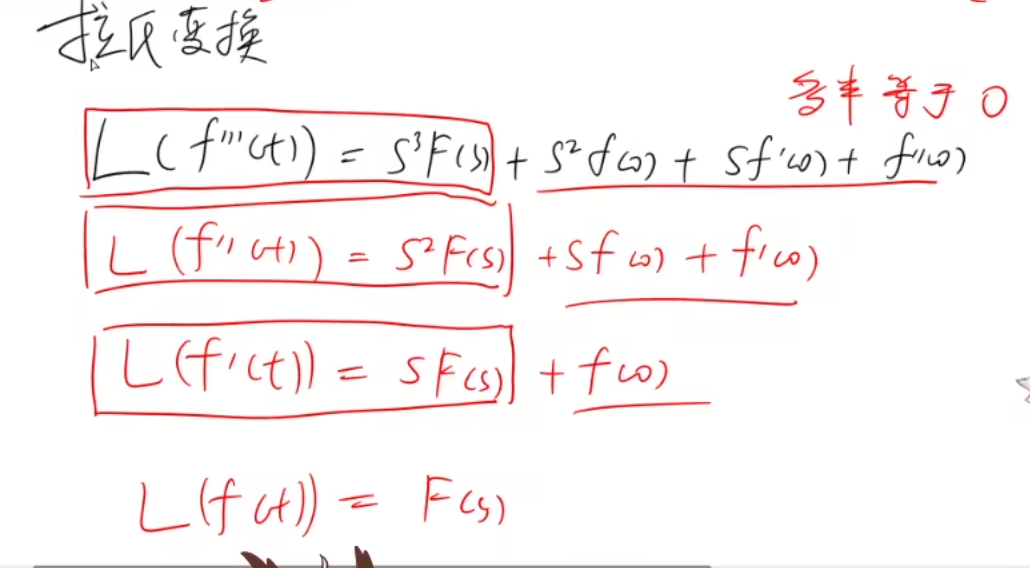 拉氏变换
多半等于0
L(f'''(t)) = S³F(s) + S²f(0) + Sf'(0) + f''(0)
L(f''(t)) = S²F(s) + Sf(0) + f'(0)
L(f'(t)) = SF(s) + f(0)
L(f(t)) = F(s)